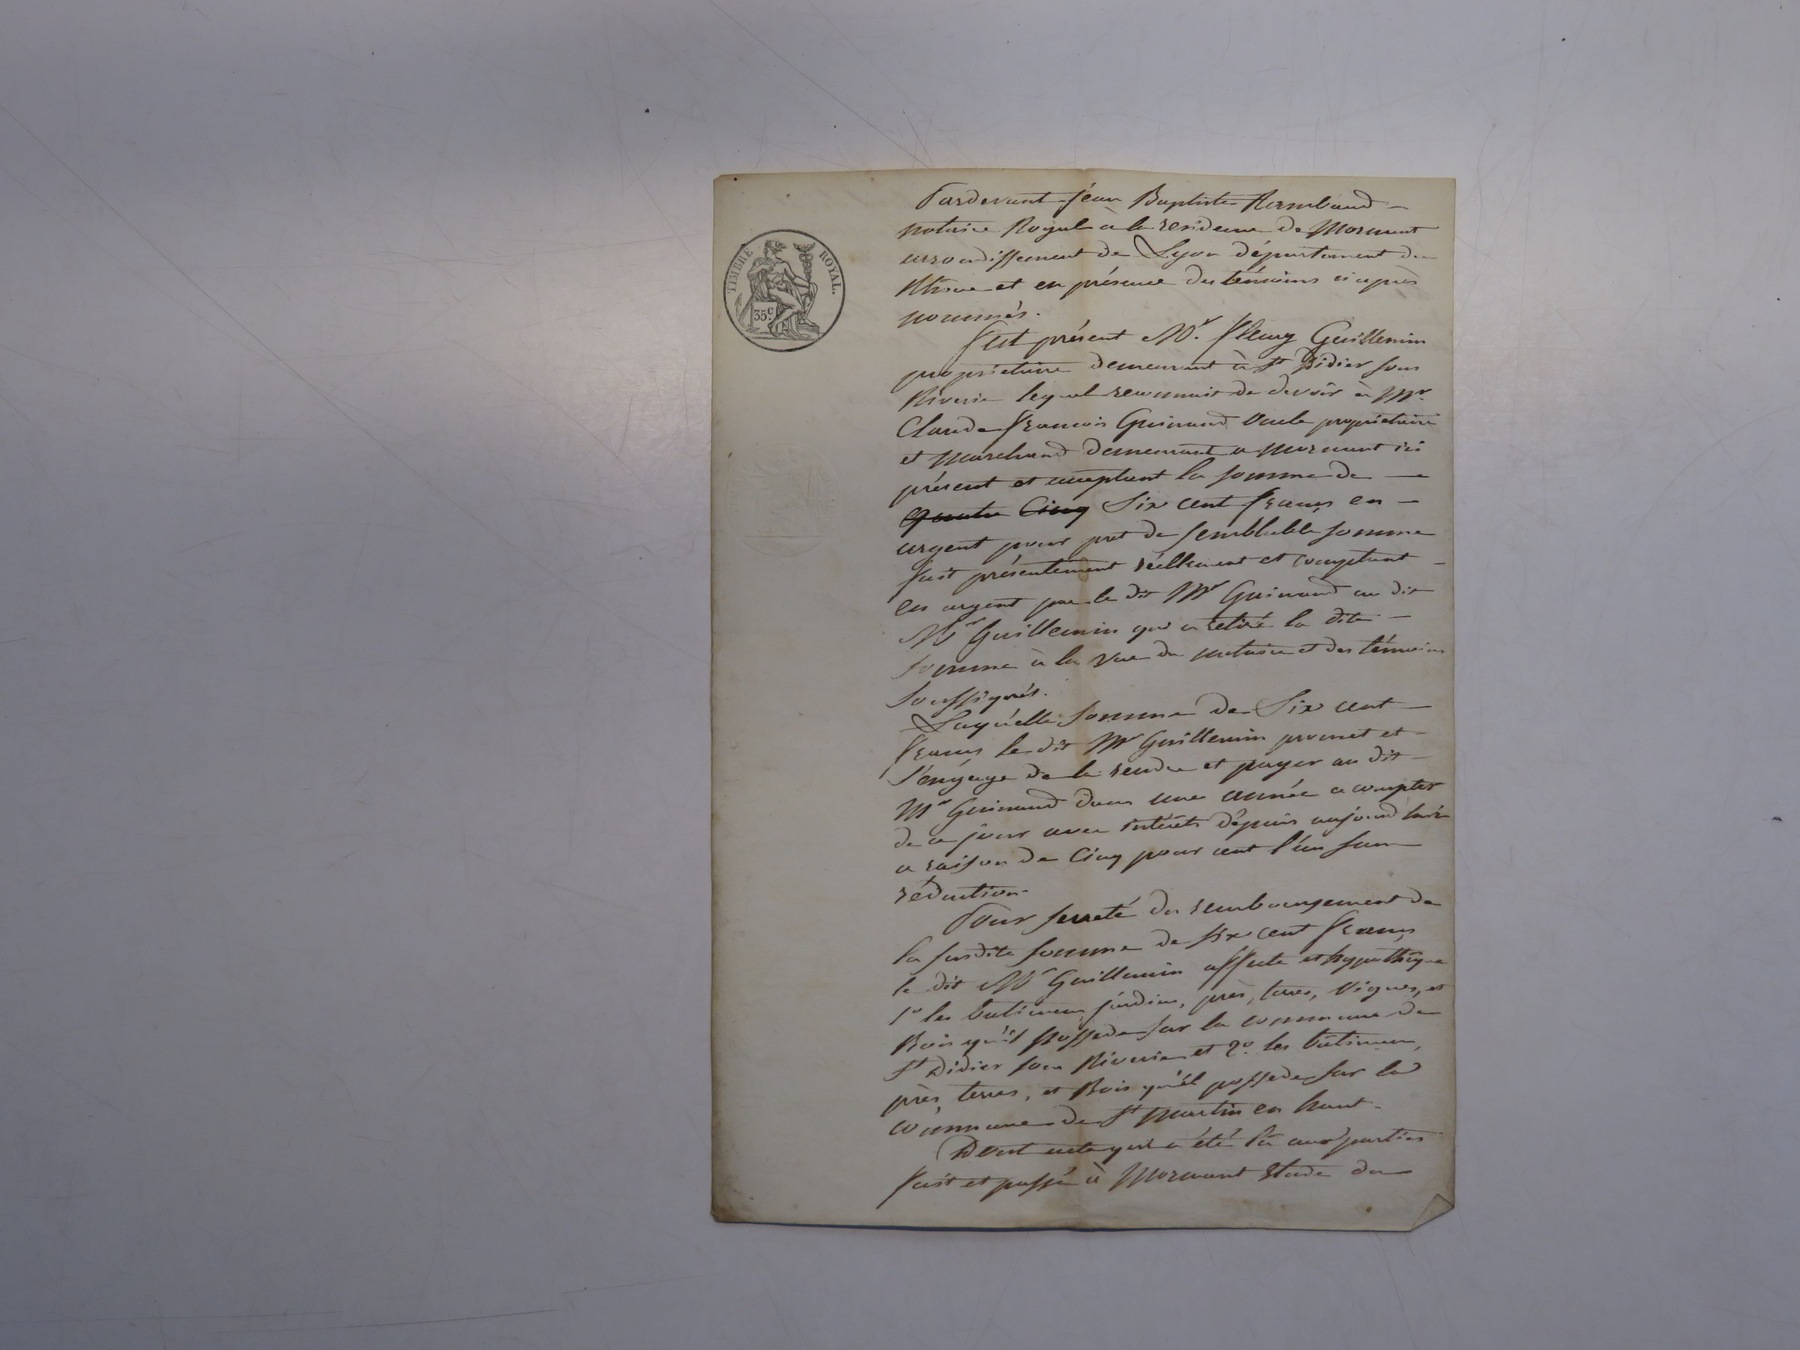 TIMBRE ROYAL.
35.c
Pardevant Jéan Baptiste Rambaud
notaire Royal à la residence de Mornant
arrondissement de Lyon département du
Rhone et en présence des témoins ci après
nommés.
Fut présent Mr. Fleury Guillemin
propriétaire demeurant à St Didier sous
Riverie lequel reconnait de devoir à Mr.
Claude François Guinand propriétaire
et Marchand demeurant a Mornant ici
présent et acceptant la somme de
quatre Cinq Six cent francs en
argent pour pret de semblable somme
fait présentement réellement et comptant
en argent par le dit Mr Guinand au dit
Mr Guillemin qui a retiré la dite
somme à la vue du notaire et des témoins
soussignés.
Laquélle somme de Six cent
francs le dit Mr Guillemin promet et
s'engage de la rendre et payer au dit
Mr Guinand dans une année a compter
de ce jour avec intérêts dépuis aujourd'hui
a raison de Cinq pour cent l'an sans
réduction.
Pour sureté du remboursement de
la susdite somme de six cent francs
le dit Mr Guillemin affecte et hypothèque
1o les batimens jardins, près, terres, Vignes, et
Bois qu'il possede sur la commune de
St Didier sous Riverie et 2o. les bâtimens,
près, terres, et Bois qu'il possede sur la
commune de St Martin en haut.
Dont acte qui a été lû aux parties
fait et passé à Mornant Etude du